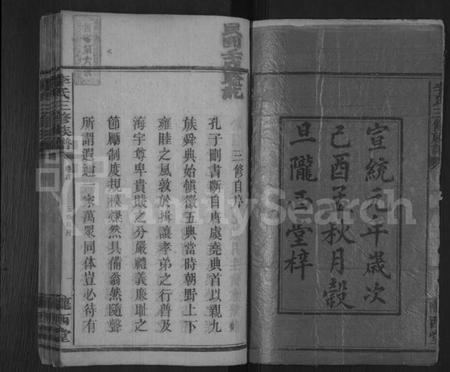 宣統元年歲次
己酉孟秋月穀
旦隴西堂梓
三修自序
孔子刪書斷自唐虞堯典首以親九
族舜典始慎徽五典當時朝野上下
雍睦之風敦於揖讓孝弟之行普及
海宇尊卑貴賤之分嚴禮義廉恥之
節勵制度規模燦然具備翕然隨聲
所謂遐邇一家萬眾同体豈必待有
李氏三修族譜
隴西堂
FamilySearch